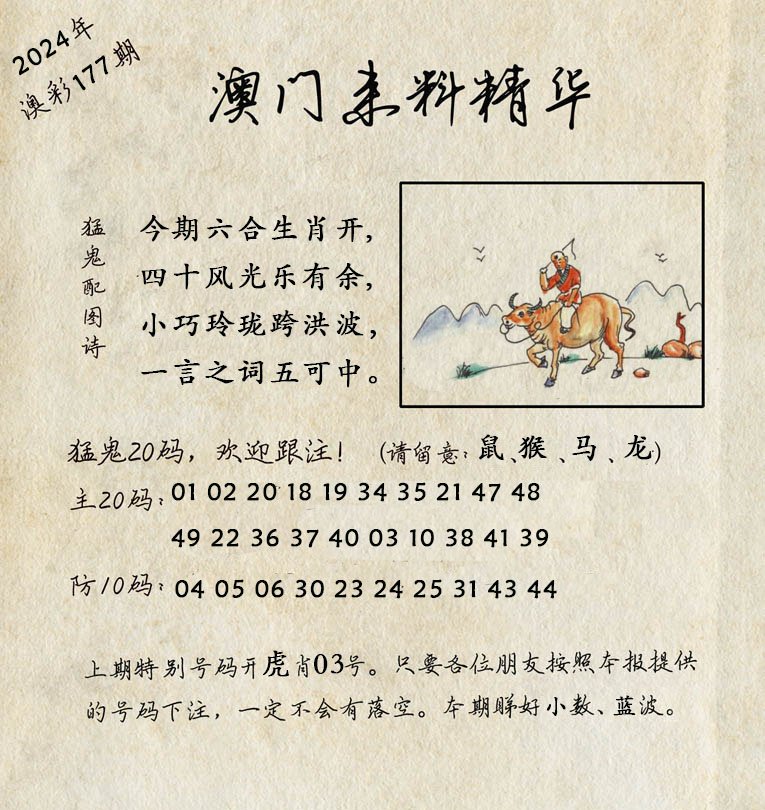 2024年
澳彩177期
澳门来料精华
猛鬼配图诗
今期六合生肖开,
四十风光乐有余,
小巧玲珑跨洪波，
一言之词五可中。
猛鬼20码，欢迎跟注！（请留意：鼠、猴、马、龙）
主20码：01 02 20 18 19 34 35 21 47 48
49 22 36 37 40 03 10 38 41 39
防10码：04 05 06 30 23 24 25 31 43 44
上期特别号码开虎肖03号。只要各位朋友按照本报提供
的号码下注，一定不会有落空。本期睇好小数、蓝波。